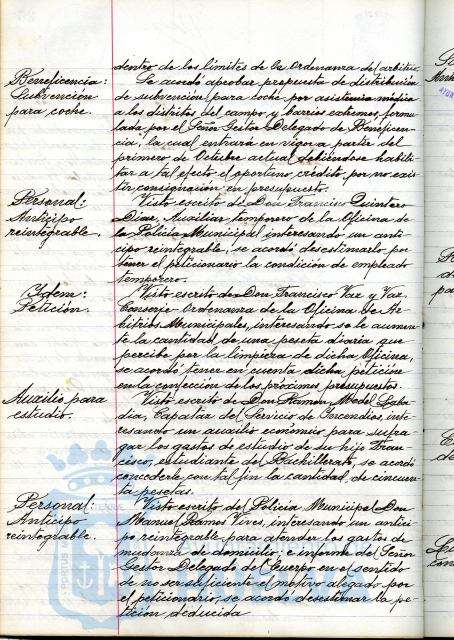 dentro de los límites de la Ordenanza del arbitrio
Beneficencia:
Subvención
para coche.
Se acordó aprobar propuesta de distribución
de subvención para coche por asistencia médica
a los distritos del campo y barrios extremos, formu-
lada por el Señor Gestor Delegado de Beneficen-
cia; la cual entrará en vigor a partir del
primero de Octubre actual debiéndose habili-
tar a tal efecto el oportuno crédito, por no exis-
tir consignación en presupuesto.
Personal:
Anticipo
reintegrable.
Visto escrito de Don Francisco Quintero
Díaz, Auxiliar temporero de la Oficina de
la Policía Municipal interesando un anti
cipo reintegrable, se acordó desestimarlo por
tener el peticionario la condición de empleado
temporero.
Ydem:
Petición.
Visto escrito de Don Francisco Vaz y Vaz
Conserje-Ordenanza de la Oficina de Ar-
bitrios Municipales, interesando se le aumen-
te la cantidad de una peseta diaria que
percibe por la limpieza de dicha Oficina,
se acordó tener en cuenta dicha petición
en la confección de los próximos presupuestos.
Auxilio para
estudio.
Visto escrito de Don Ramón Model
Capataz del Servicio de Incendios inte-
resando un auxilio económico para sufra
gar los gastos de estudio de su hijo Fran-
cisco, estudiante del Bachillerato, se acordó
concederle con tal fin la cantidad de cincuen-
ta pesetas.
Personal:
Anticipo
reintegrable.
Visto escrito del Policía Municipal Don
Manuel Ramos Vives, interesando un antici-
po reintegrable para atender los gastos de
mudanza de domicilio; e informe del Señor
Gestor Delegado del Cuerpo en el sentido
de no ser suficiente el motivo alegado por
el peticionario, se acordó desestimar la pe-
tición deducida